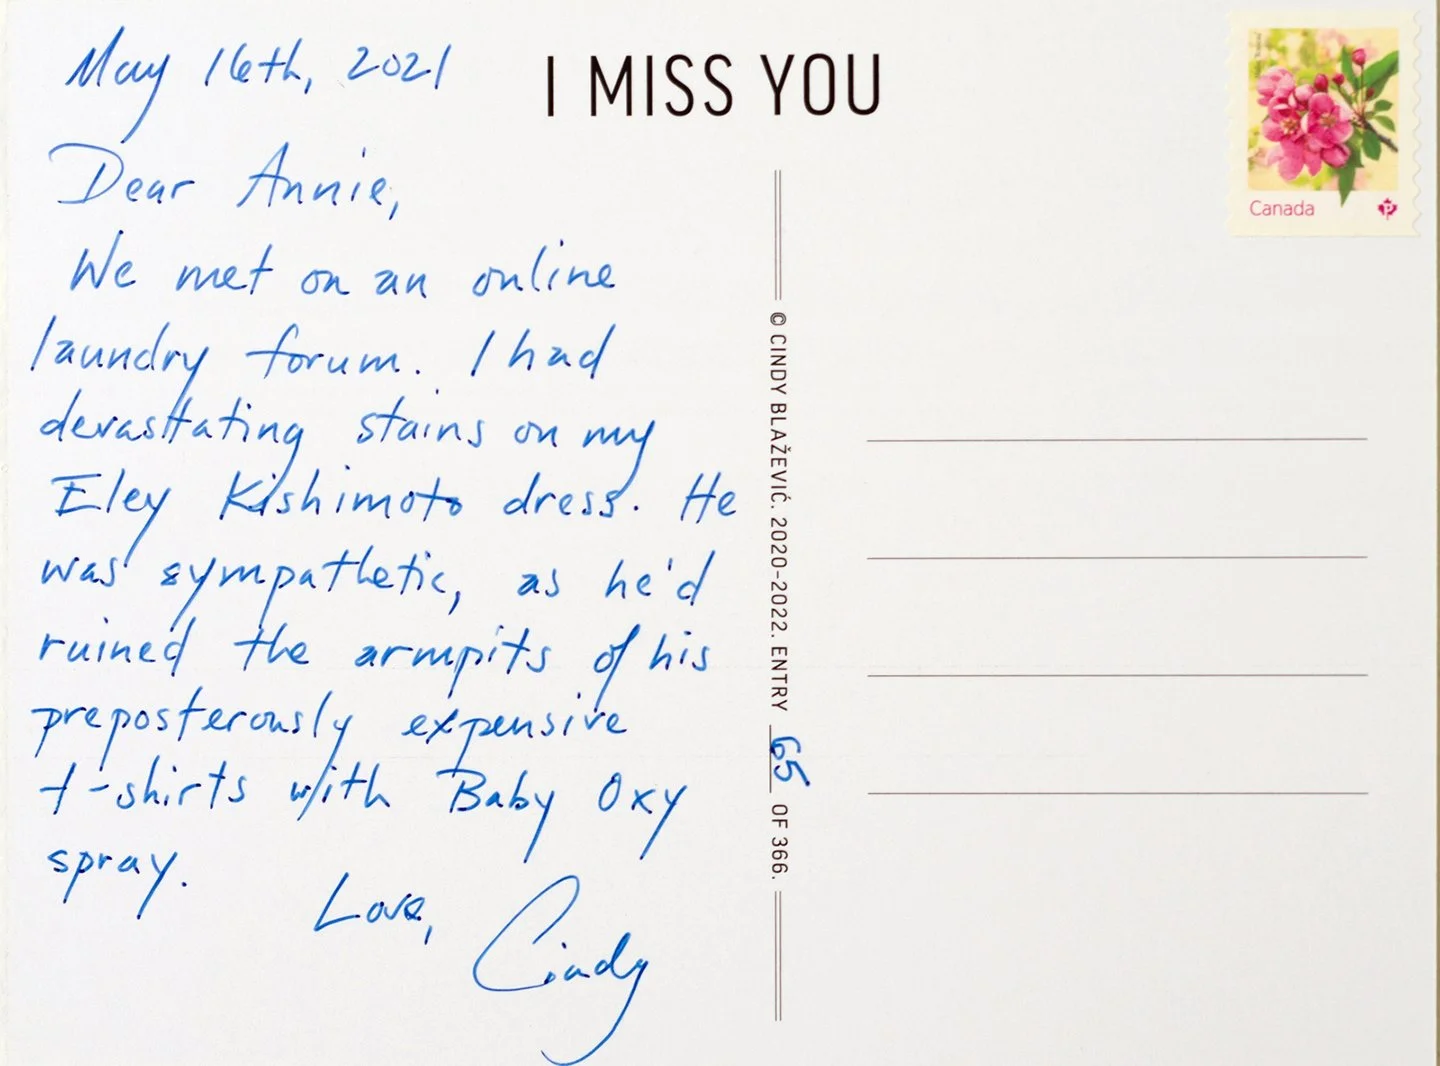 May 16th, 2021
I MISS YOU
Dear Annie,
We met on an online
laundry forum. I had
devastating stains on my
Eley Kishimoto dress. He
was sympathetic, as he'd
ruined the armpits of his
preposterously expensive
t-shirts with Baby Oxy
spray.
Love,
Cindy
© CINDY BLAŽEVIĆ. 2020-2022. ENTRY 65 OF 366.
Canada
P